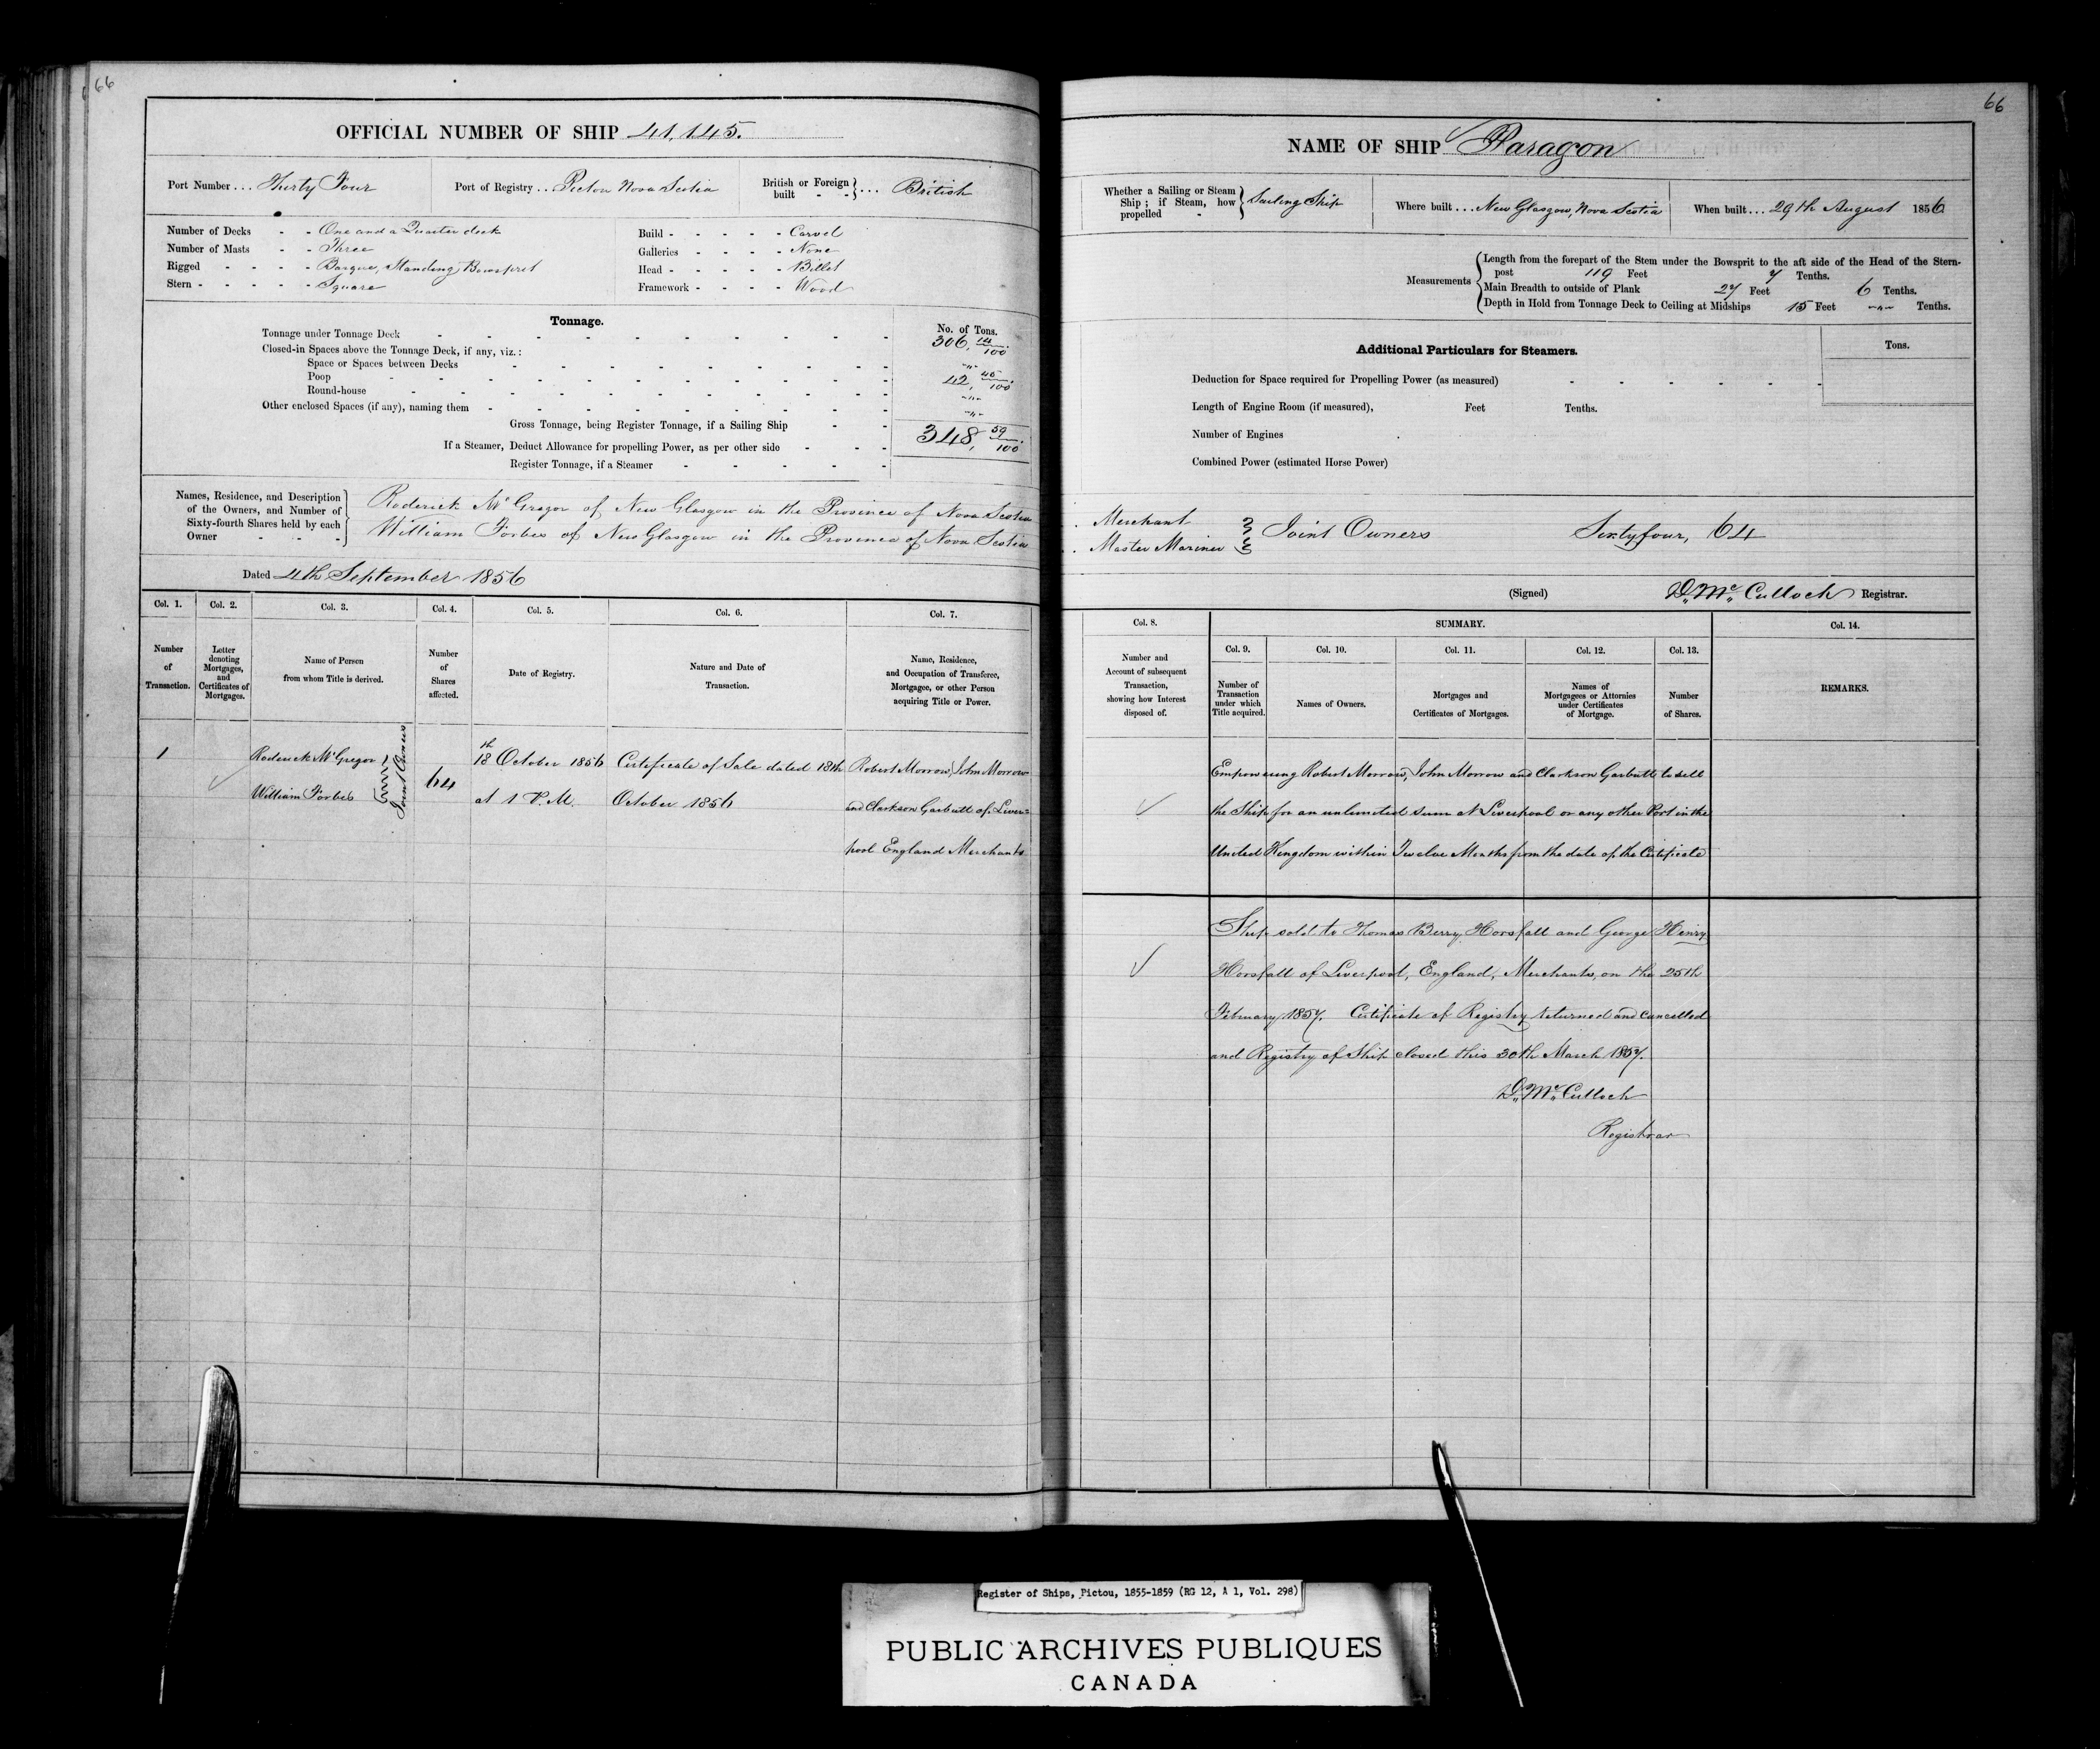 66
OFFICIAL NUMBER OF SHIP 41,145.
Port Number ... Thirty Four
Port of Registry .. Pictou Nova Scotia
British or Foreign built - - } ... British
Number of Decks - - One and a Quarter deck
Number of Masts - - Three
Rigged - - - - Barque, Standing Bowsprit
Stern - - - - - Square
Build - - - - - Carvel
Galleries - - - - None
Head - - - - - Billet
Framework - - - - Wood
Tonnage.
No. of Tons.
Tonnage under Tonnage Deck 306, 14/100
Closed-in Spaces above the Tonnage Deck, if any, viz.:
Space or Spaces between Decks "
Poop 42, 45/100
Round-house "
Other enclosed Spaces (if any), naming them "
Gross Tonnage, being Register Tonnage, if a Sailing Ship 348, 59/100
If a Steamer, Deduct Allowance for propelling Power, as per other side
Register Tonnage, if a Steamer
Names, Residence, and Description of the Owners, and Number of Sixty-fourth Shares held by each Owner
Roderick McGregor of New Glasgow in the Province of Nova Scotia
William Forbes of New Glasgow in the Province of Nova Scotia
Dated 4th September 1856
Col. 1. Col. 2. Col. 3. Col. 4. Col. 5. Col. 6. Col. 7.
Number of Transaction.
Letter denoting Mortgages, and Certificates of Mortgages.
Name of Person from whom Title is derived.
Number of Shares affected.
Date of Registry.
Nature and Date of Transaction.
Name, Residence, and Occupation of Transferee, Mortgagee, or other Person acquiring Title or Power.
1
Roderick McGregor
William Forbes
Joint Owners
64
18th October 1856
at 1 P.M.
Certificate of Sale dated 18th
October 1856
Robert Morrow, John Morrow
and Clarkson Garbutt of Liver=
pool England Merchants
66
NAME OF SHIP Paragon
Whether a Sailing or Steam Ship; if Steam, how propelled - } Sailing Ship
Where built ... New Glasgow, Nova Scotia
When built ... 29th August 1856
Measurements
Length from the forepart of the Stem under the Bowsprit to the aft side of the Head of the Stern-
post 119 Feet 7 Tenths.
Main Breadth to outside of Plank 27 Feet 6 Tenths.
Depth in Hold from Tonnage Deck to Ceiling at Midships 15 Feet " Tenths.
Additional Particulars for Steamers.
Tons.
Deduction for Space required for Propelling Power (as measured)
Length of Engine Room (if measured), Feet Tenths.
Number of Engines
Combined Power (estimated Horse Power)
Merchant
Master Mariner
Joint Owners Sixty four, 64
(Signed) D. McCulloch Registrar.
Col. 8.
SUMMARY.
Col. 14.
Col. 9. Col. 10. Col. 11. Col. 12. Col. 13.
Number and Account of subsequent Transaction, showing how Interest disposed of.
Number of Transaction under which Title acquired.
Names of Owners.
Mortgages and Certificates of Mortgages.
Names of Mortgagees or Attornies under Certificates of Mortgage.
Number of Shares.
REMARKS.
Empowering Robert Morrow, John Morrow and Clarkson Garbutt to sell
the Ship for an unlimited sum at Liverpool or any other Port in the
United Kingdom within Twelve Months from the date of the Certificate
Ship sold to Thomas Berry Horsfall and George Henry
Horsfall of Liverpool, England, Merchants, on the 25th
February 1857. Certificate of Registry returned and cancelled
and Registry of Ship closed this 30th March 1857.
D. McCulloch
Registrar
Register of Ships, Pictou, 1855-1859 (RG 12, A 1, Vol. 298)
PUBLIC ARCHIVES PUBLIQUES
CANADA